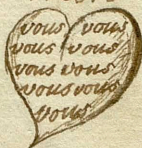 vous vous
vous vous
vous vous
vous vous
vous